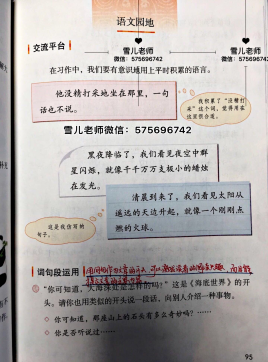 语文园地
雪儿老师
微信：575696742
雪儿老师
微信：575696742
交流平台
在习作中，我们要有意识地用上平时积累的语言。
他没精打采地坐在那里，一句
话也不说。
我积累了“没精打
采”这个词，觉得用在
这里很合适。
雪儿老师微信：575696742
黑夜降临了，我们看见夜空中群
星闪烁，就像千千万万支极小的蜡烛
在发光。
清晨到来了，我们看见太阳从
遥远的天边升起，就像一个刚刚点
燃的火球。
这是我仿写的
句子。
词句段运用
“你可知道，大海深处是怎样的吗？”这是《海底世界》的开
头，请你也用类似的开头说一段话，向别人介绍一种事物。
你可知道，那座山上的石头有多么奇妙吗？……
你是否听说过……
95